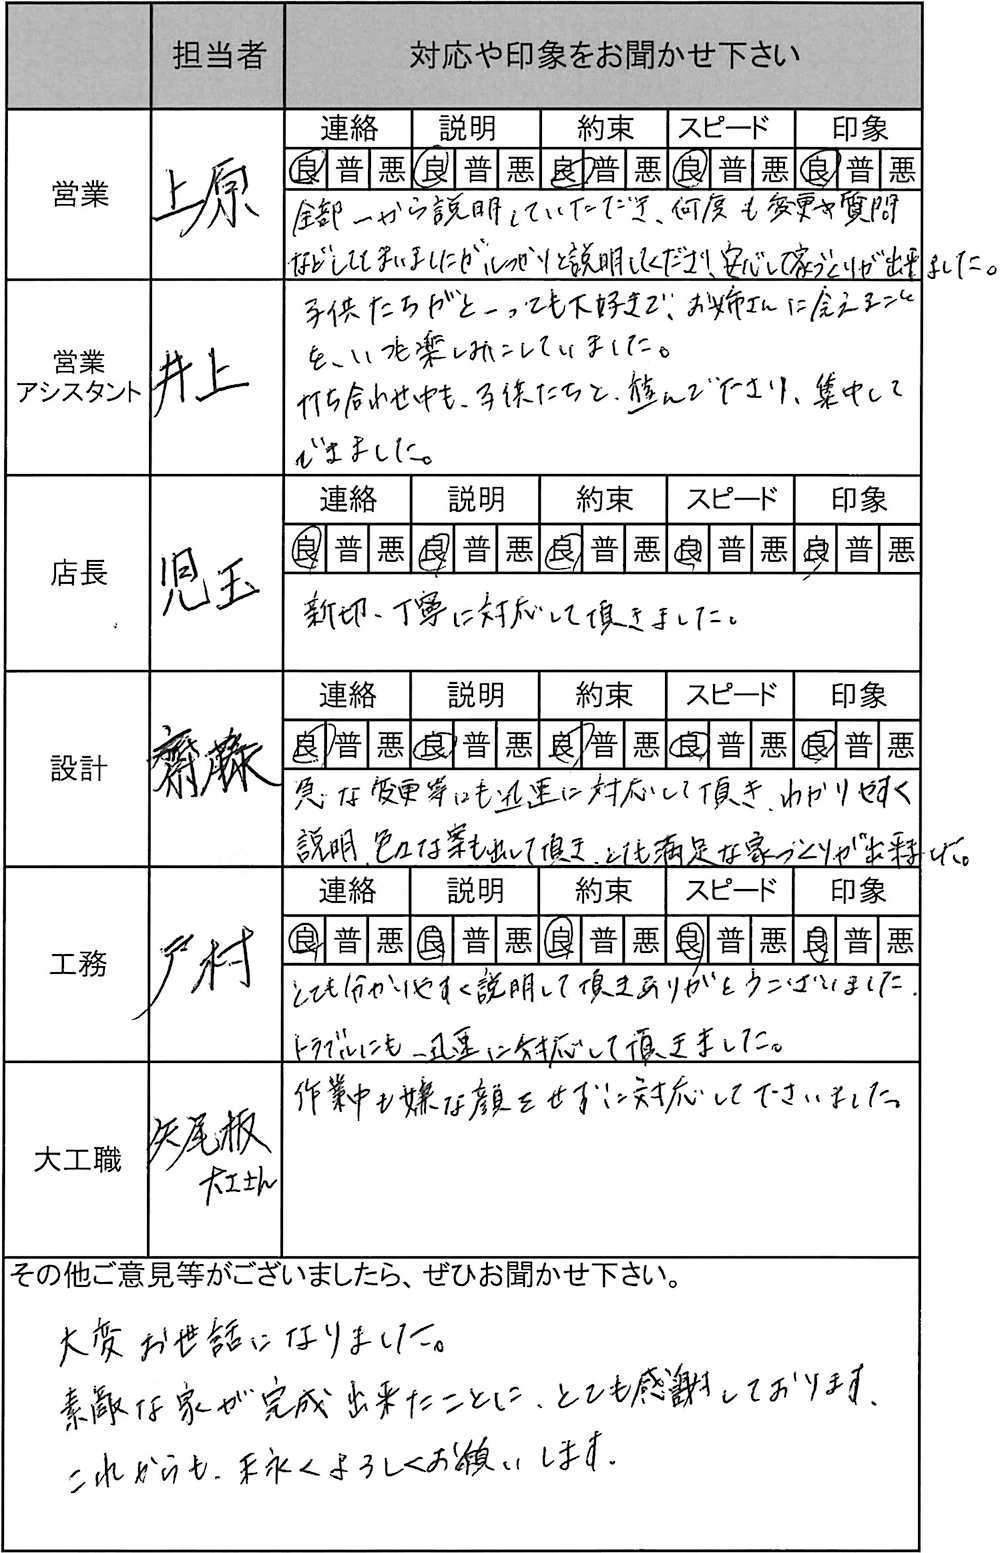 担当者 対応や印象をお聞かせ下さい
営業 上原
連絡 説明 約束 スピード 印象
良 普 悪 良 普 悪 良 普 悪 良 普 悪 良 普 悪
全部一から説明していただき、何度も変更や質問
などしてしまいましたがしっかりと説明してくださり、安心して家づくりが出来ました。
営業アシスタント 井上
子供たちがとーっても大好きで、お姉さんに会えること
を、いつも楽しみにしていました。
打ち合わせ中も、子供たちと、遊んで下さり、集中して
できました。
店長 児玉
連絡 説明 約束 スピード 印象
良 普 悪 良 普 悪 良 普 悪 良 普 悪 良 普 悪
親切、丁寧に対応して頂きました。
設計 齋藤
連絡 説明 約束 スピード 印象
良 普 悪 良 普 悪 良 普 悪 良 普 悪 良 普 悪
急な変更等にも迅速に対応して頂き、わかりやすく
説明、色々な案も出して頂き、とても満足な家づくりが出来ました。
工務 戸村
連絡 説明 約束 スピード 印象
良 普 悪 良 普 悪 良 普 悪 良 普 悪 良 普 悪
とても分かりやすく説明して頂きありがとうございました。
トラブルにも迅速に対応して頂きました。
大工職 矢尾板
大工さん
作業中も嫌な顔をせずに対応して下さいました。
その他ご意見等がございましたら、ぜひお聞かせ下さい。
大変お世話になりました。
素敵な家が完成出来たことに、とても感謝しております。
これからも、末永くよろしくお願いします。